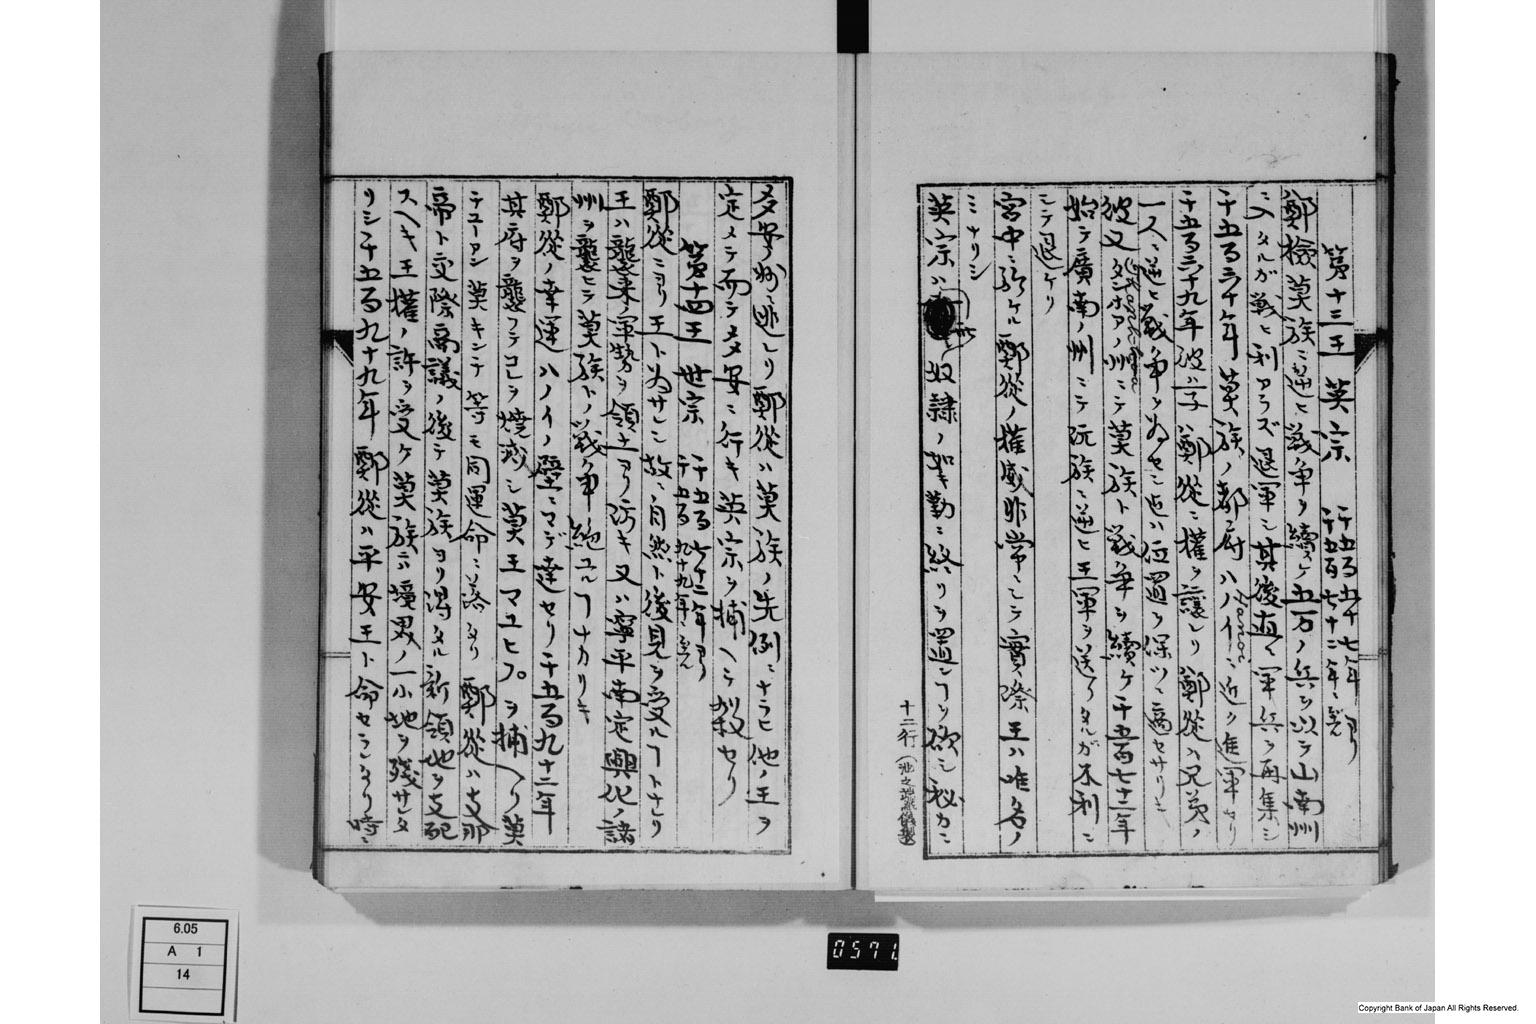 第十三王 英宗 千五百五十七年ヨリ千五百七十二年ニ至ル
鄭檢莫族ニ逆ヒ戦争ヲ續ケ五万ノ兵ヲ以テ山南州
ニ入タルガ戦ヒ利アラズ退軍シ其後直ク軍兵ヲ再集シ
千五百六十年莫族ノ都府ハノイニ近ク進軍セリ
Hanoi
千五百六十九年彼ハ子鄭從ニ權ヲ譲レリ鄭從ハ兄弟ノ
一人ニ逆ヒ戦争ヲ為セシ迄ハ位置ヲ保ツニ適セサリキ
彼又タンホアノ州ニテ莫族ト戦争ヲ續ケ千五百七十二年
始テ廣南ノ州ニテ阮族ニ逆ヒ王軍ヲ送リタルガ不利ニ
シテ退ケリ
宮中ニ於ケル鄭從ノ權威非常ニシテ實際王ハ唯名ノ
ミナリシ
英宗ハ此奴隷ノ挙動ニ終リヲ置ンフヲ欲シ秘カニ
十二行
乂安州ニ逃レリ鄭從ハ莫族ノ先例ニナラヒ他ノ王ヲ
定メテ而シテ乂安ニ行キ英宗ヲ捕ヘテ殺セリ
第十四王 世宗 千五百七十二年ヨリ千五百九十九年ニ至ル
鄭從ニヨリ王ト為サレシ故ニ自然ト後見ヲ受ルフトナレリ
王ハ襲来ノ軍勢ヲ領土ヨリ防キ又ハ寧平南定興化ノ諸
州ヲ襲ヒテ莫族トノ戦争絶ユルフナカリキ
鄭從ノ幸運ハノイノ壁ニマデ達セリ千五百九十二年
其府ヲ襲フテコレヲ焼滅シ莫王マユヒプヲ捕ヘタリ莫
莫キンテ等モ同運命ニ落タリ鄭從ハ支那
帝ト交際商議ノ後チ莫族ヨリ得タル新領地ヲ支配
スヘキ王權ノ許ヲ受ケ莫族ニハ境界ノ一小地ヲ残サレタ
リシ千五百九十九年鄭從ハ平安王ト命セラレタリ時ニ
0571
6.05
A 1
14
Copyright Bank of Japan All Rights Reserved.